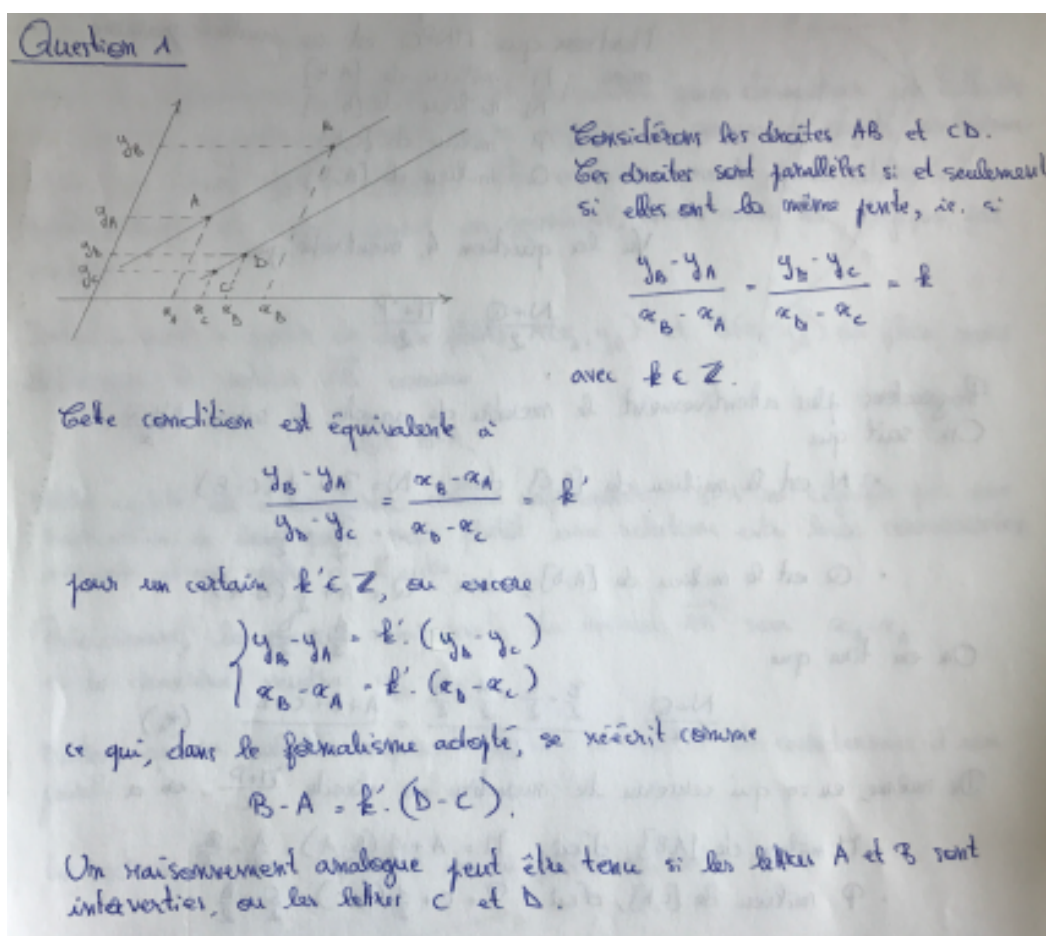 Question 1
y_B
B
y_A
A
y_D
D
y_C
C
x_A x_C x_D x_B
Considérons les droites AB et CD.
Ces droites sont parallèles si et seulement
si elles ont la même pente, ie. si
\frac{y_B - y_A}{x_B - x_A} = \frac{y_D - y_C}{x_D - x_C} = k
avec k ∈ Z.
Cette condition est équivalente à
\frac{y_B - y_A}{y_D - y_C} = \frac{x_B - x_A}{x_D - x_C} = k'
pour un certain k' ∈ Z, ou encore
y_B - y_A = k'. (y_D - y_C)
x_B - x_A = k'. (x_D - x_C)
ce qui, dans le formalisme adopté, se réécrit comme
B - A = k'. (D - C).
Un raisonnement analogue peut être tenu si les lettres A et B sont
interverties, ou les lettres C et D.